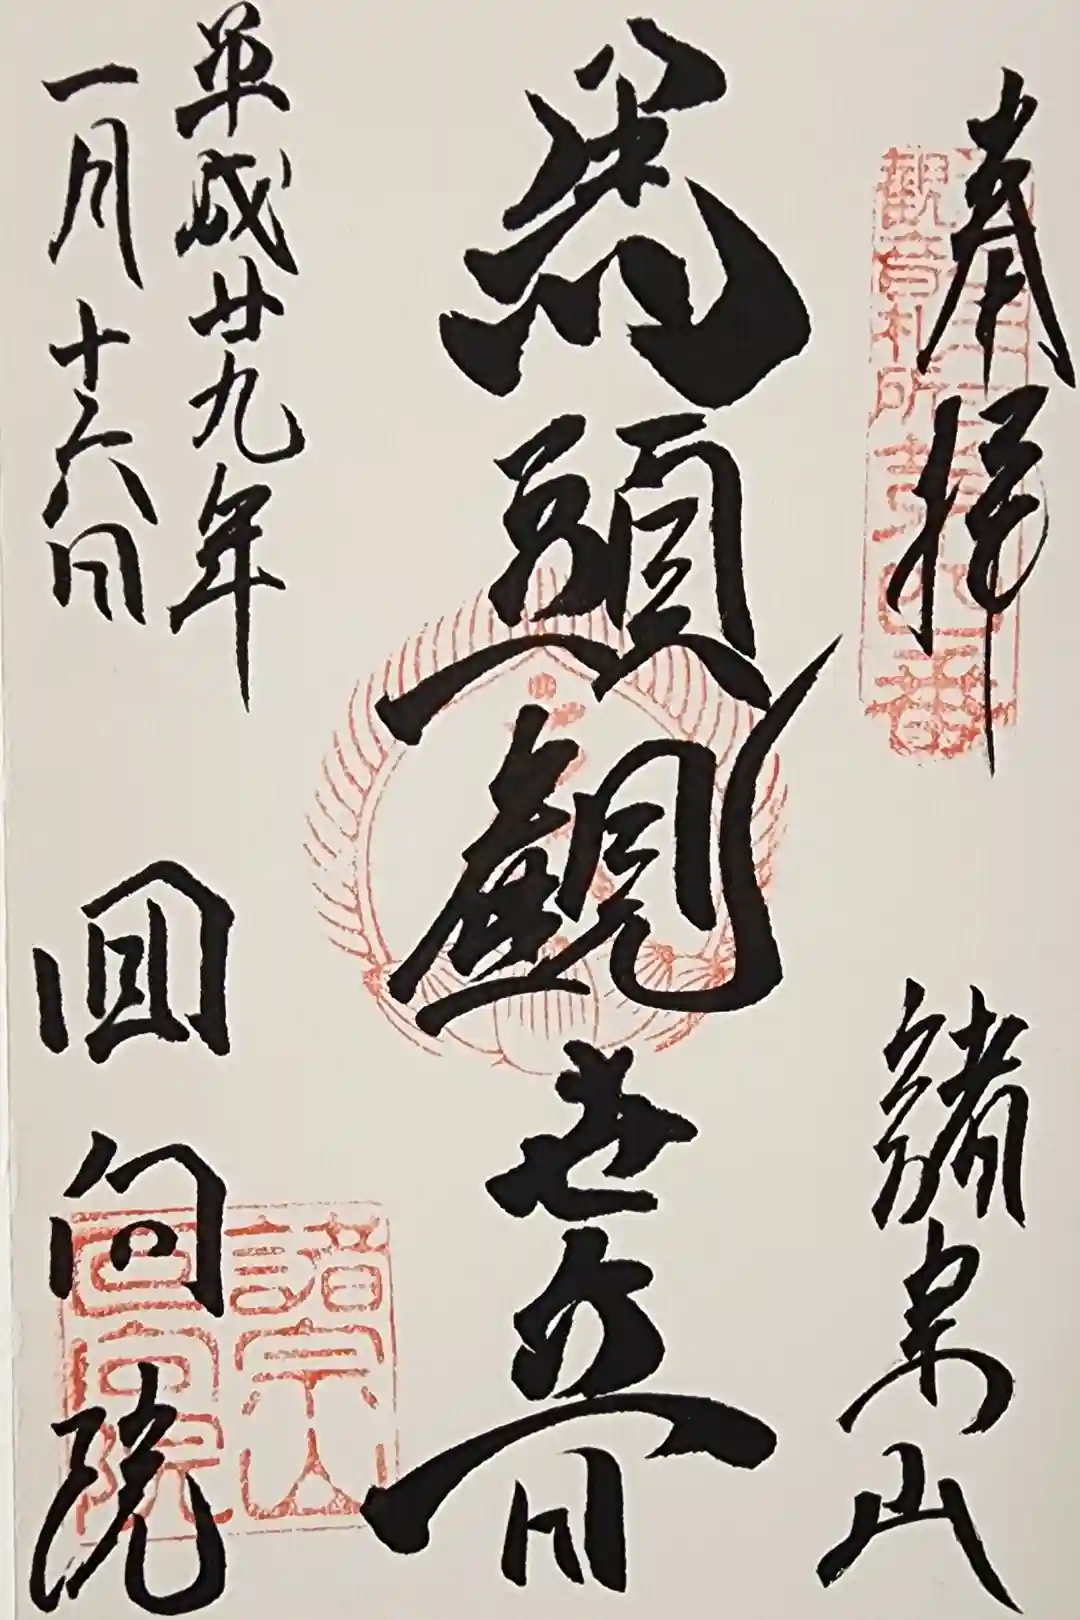 奉拝
諸宗山
馬頭観世音
平成廿九年
一月十六日
回向院
観音札所
第四番
諸宗山
回向院